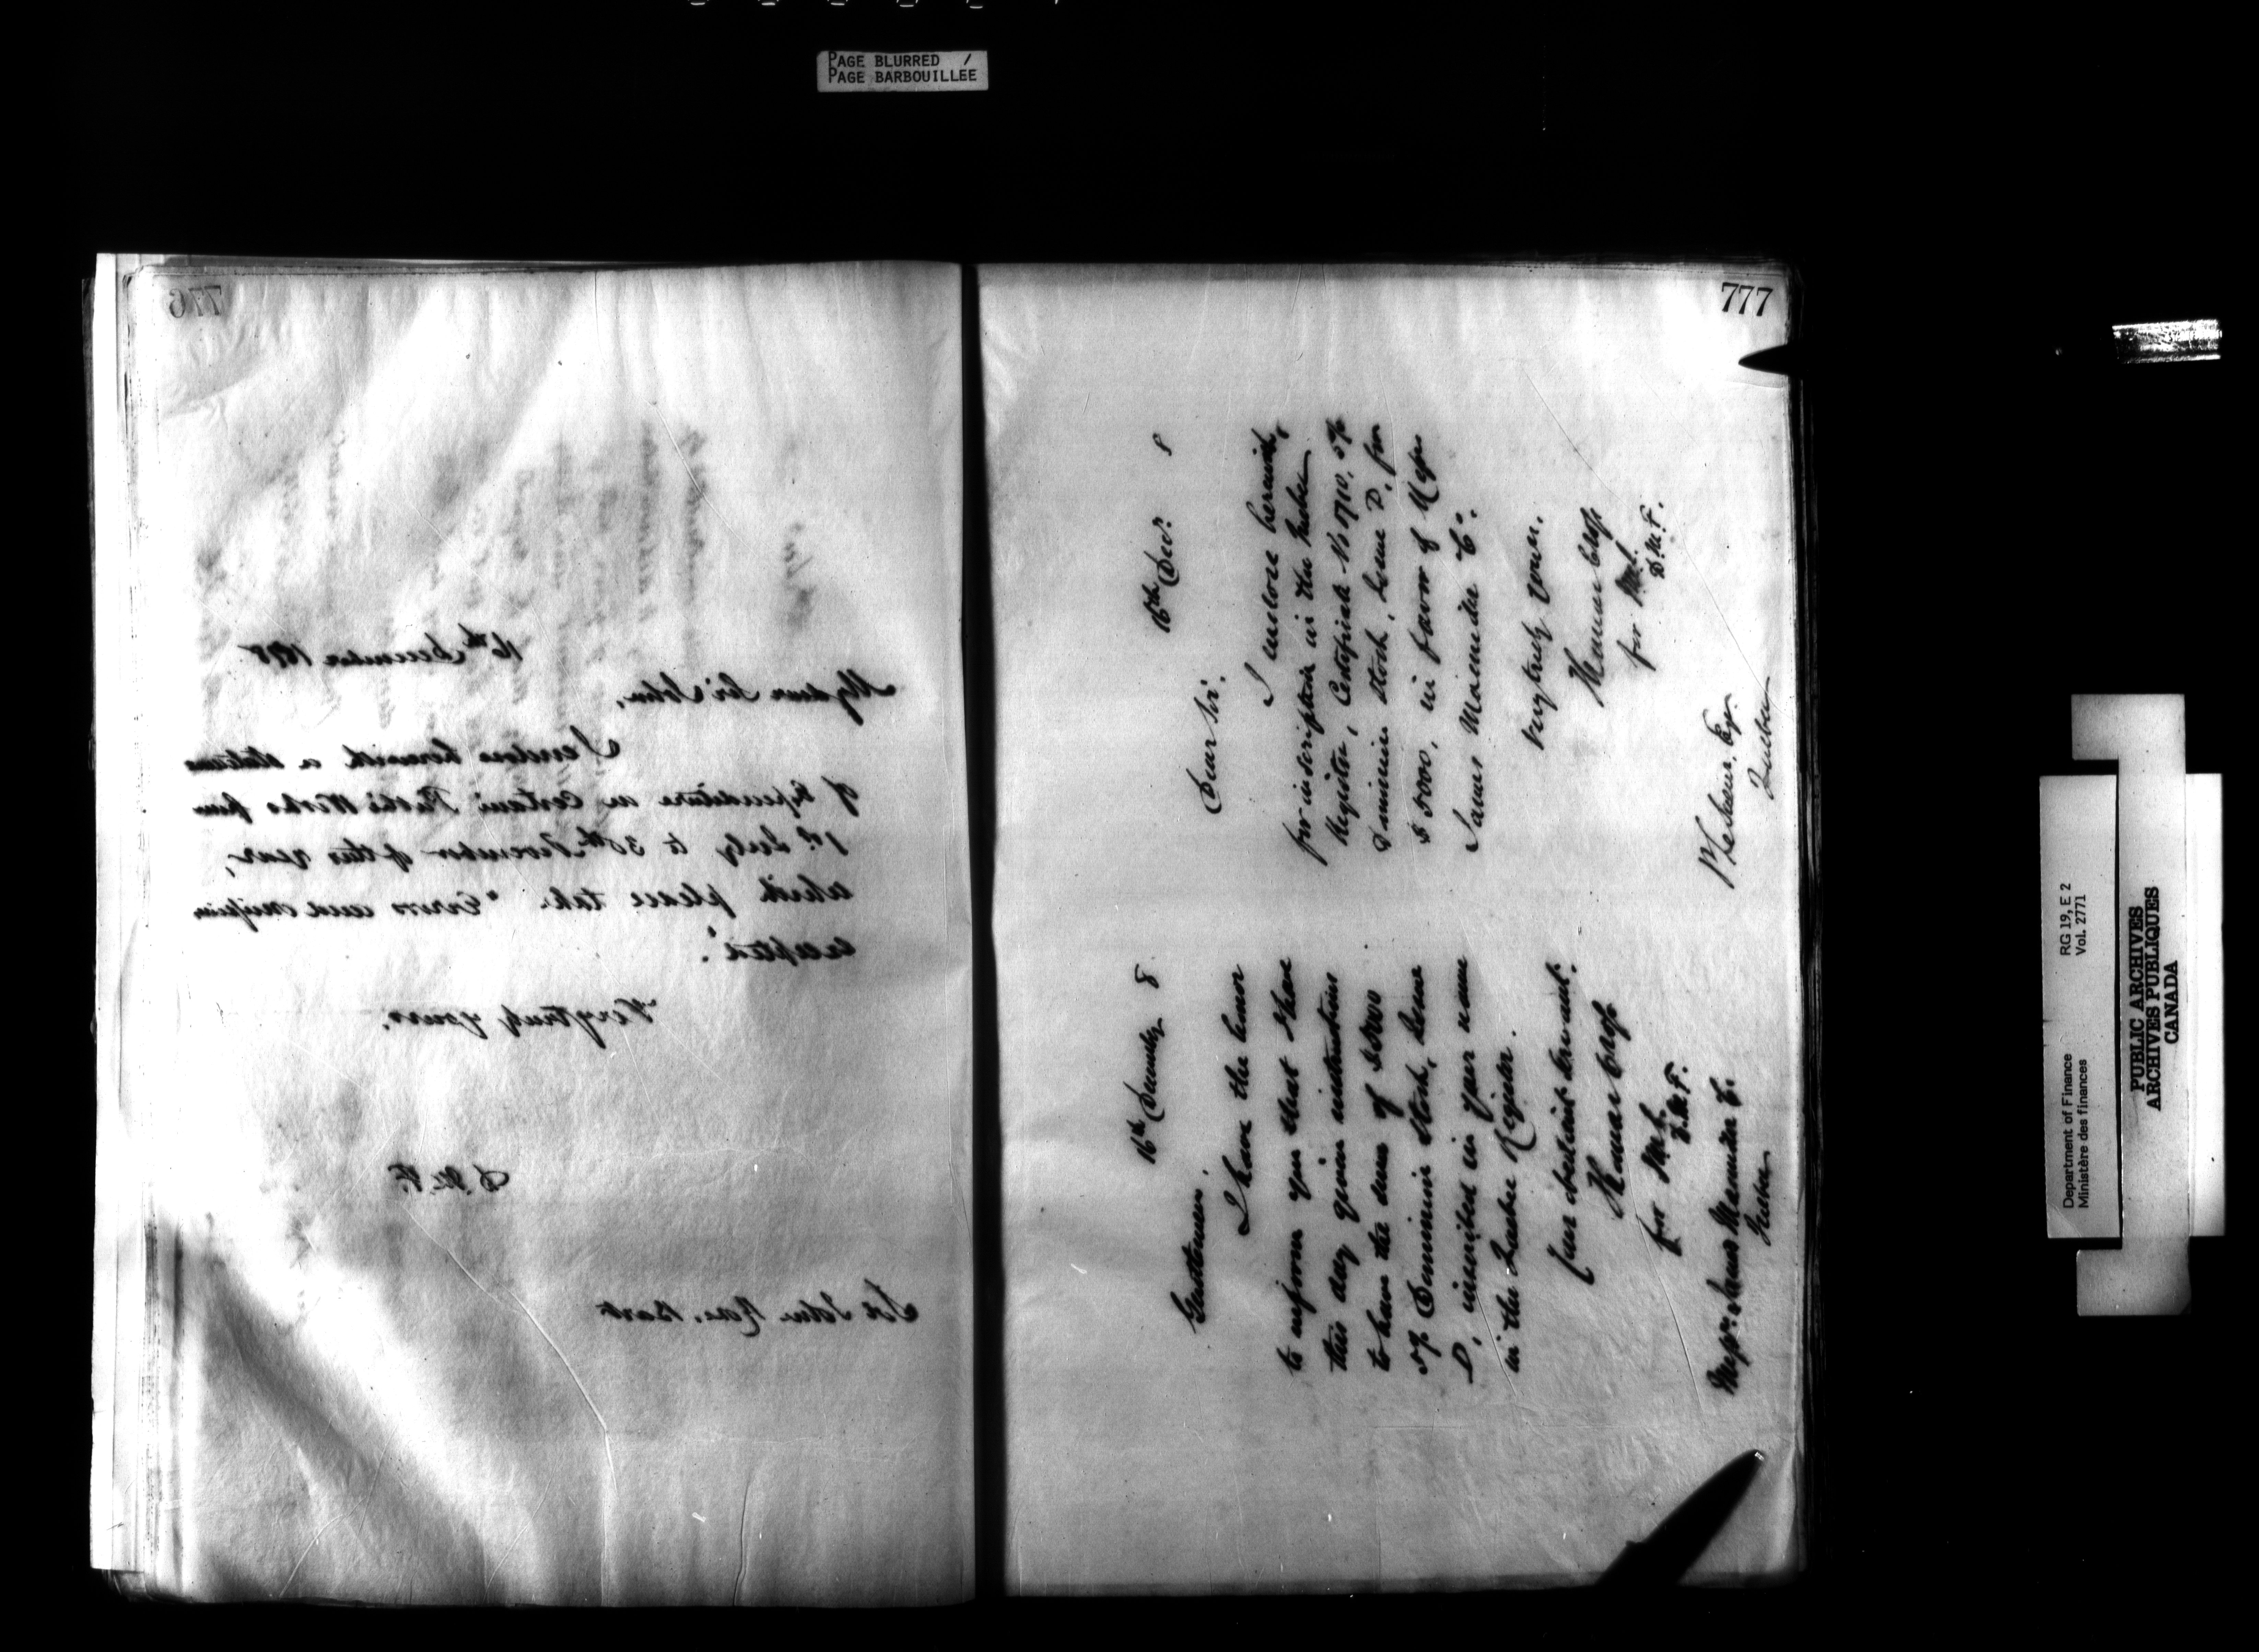 PAGE BLURRED /
PAGE BARBOUILLEE
776
16th December 1878
My dear Sir John,
I enclose herewith a statement
of Expenditure on Certain Public Works from
1st July to 30th November of this year,
which please take "Errors and omissions
excepted".
Very truly yours,
D.M.F.
Sir John Rose, Bart
777
16th December 8
Gentlemen,
I have the honor
to inform you that I have
this day given instructions
to have the sum of $5000
5% Dominion Stock, Issue
D, inscribed in your name
in the Quebec Register.
Your obedient servant.
for J.M.C.
D.M.F.
Messrs. James Macnider Co.
Quebec
16th Decr. 8
Dear Sir.
I enclose herewith,
for inscription in the Quebec
Register, Certificate No 1710, 5%
Dominion Stock, Issue D, for
$5000, in favor of Messrs
James Macnider Co.
Very truly yours.
for J.M.C.
D.M.F.
Esqr.
Quebec
Department of Finance
Ministère des finances
RG 19, E 2
Vol. 2771
PUBLIC ARCHIVES
ARCHIVES PUBLIQUES
CANADA